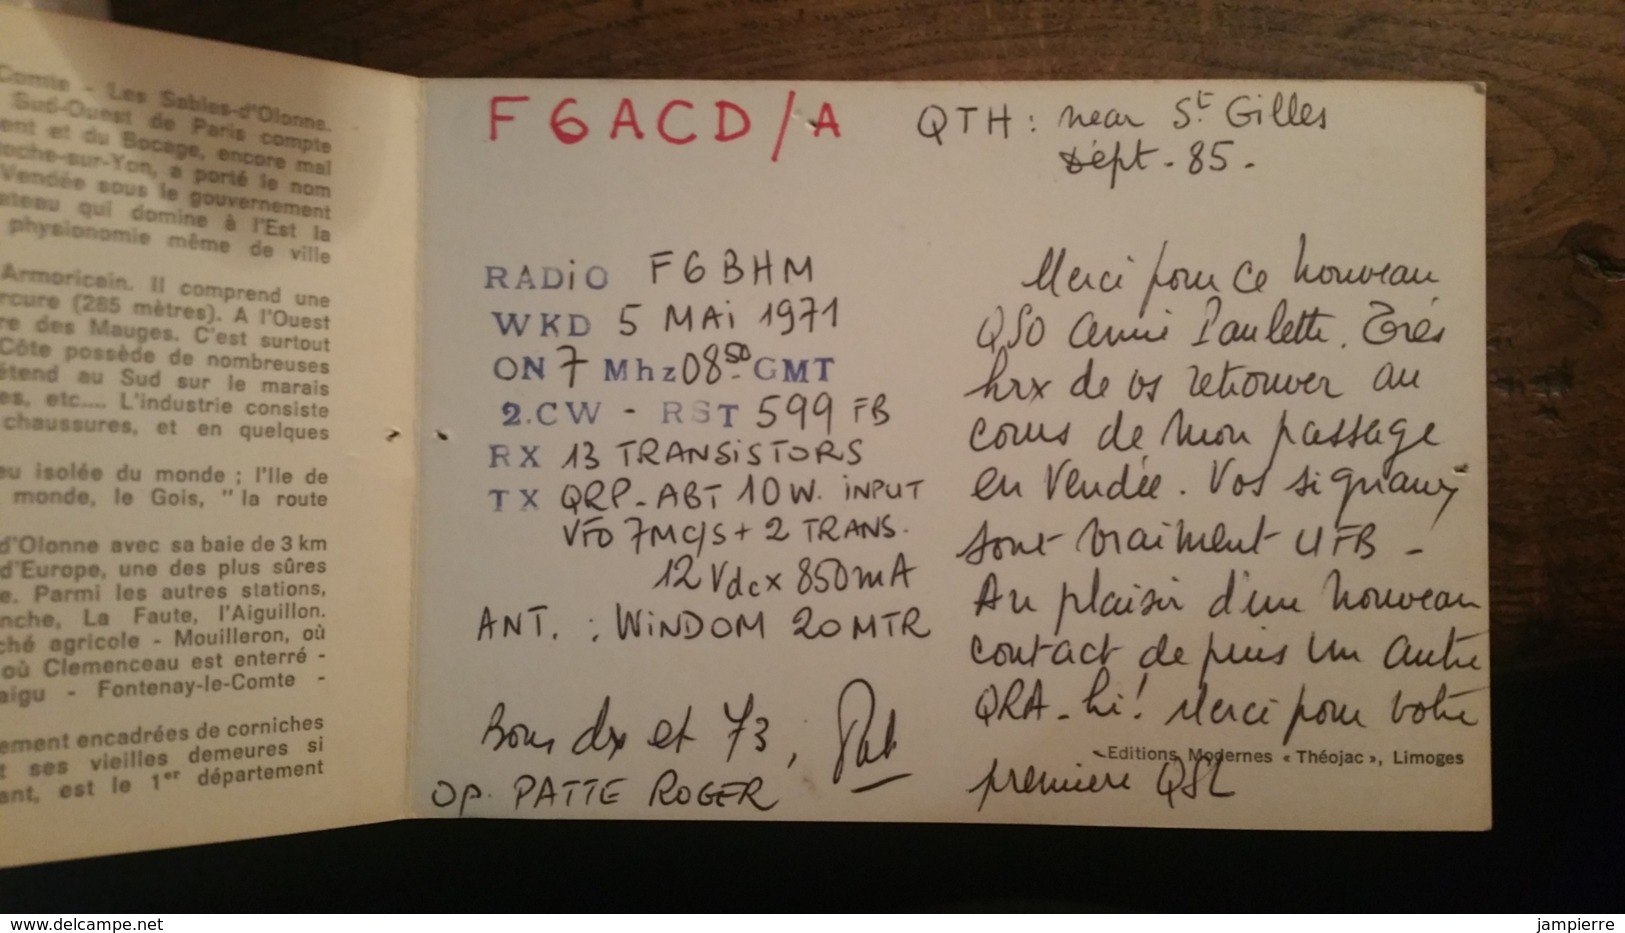 Comte - Les Sables-d'Olonne.
Sud-Ouest de Paris compte
ent et du Bocage, encore mal
oche-sur-Yon, a porté le nom
Vendée sous le gouvernement
ateau qui domine à l'Est la
physionomie même de ville
Armoricain. Il comprend une
rcure (285 mètres). A l'Ouest
re des Mauges. C'est surtout
Côte possède de nombreuses
étend au Sud sur le marais
es, etc.... L'industrie consiste
chaussures, et en quelques
eu isolée du monde ; l'Ile de
monde, le Gois, " la route
d'Olonne avec sa baie de 3 km
d'Europe, une des plus sûres
e. Parmi les autres stations,
nche, La Faute, l'Aiguillon.
ché agricole - Mouilleron, où
où Clemenceau est enterré -
aigu - Fontenay-le-Comte -
ement encadrées de corniches
t ses vieilles demeures si
ant, est le 1er département
F6ACD/A
QTH : near St Gilles
Dépt - 85 -
RADiO F6BHM
WKD 5 MAi 1971
ON 7 Mhz 08 50 GMT
2.CW - RST 599 FB
RX 13 TRANSiSTORS
TX QRP - ABT 10W. iNPUT
VFO 7MC/S + 2 TRANS.
12 Vdc x 850mA
ANT. : WiNDOM 20MTR
Bons dx et 73,
op. PATTE ROGER
Merci pour ce nouveau
QSO Amie Paulette. Très
hrx de vs retrouver au
cours de mon passage
en Vendée. Vos signaux
sont vraiment UFB -
Au plaisir d'un nouveau
contact depuis un autre
QRA - hi! Merci pour votre
première QSL
Editions Modernes « Théojac », Limoges
delcampe.net
jampierre